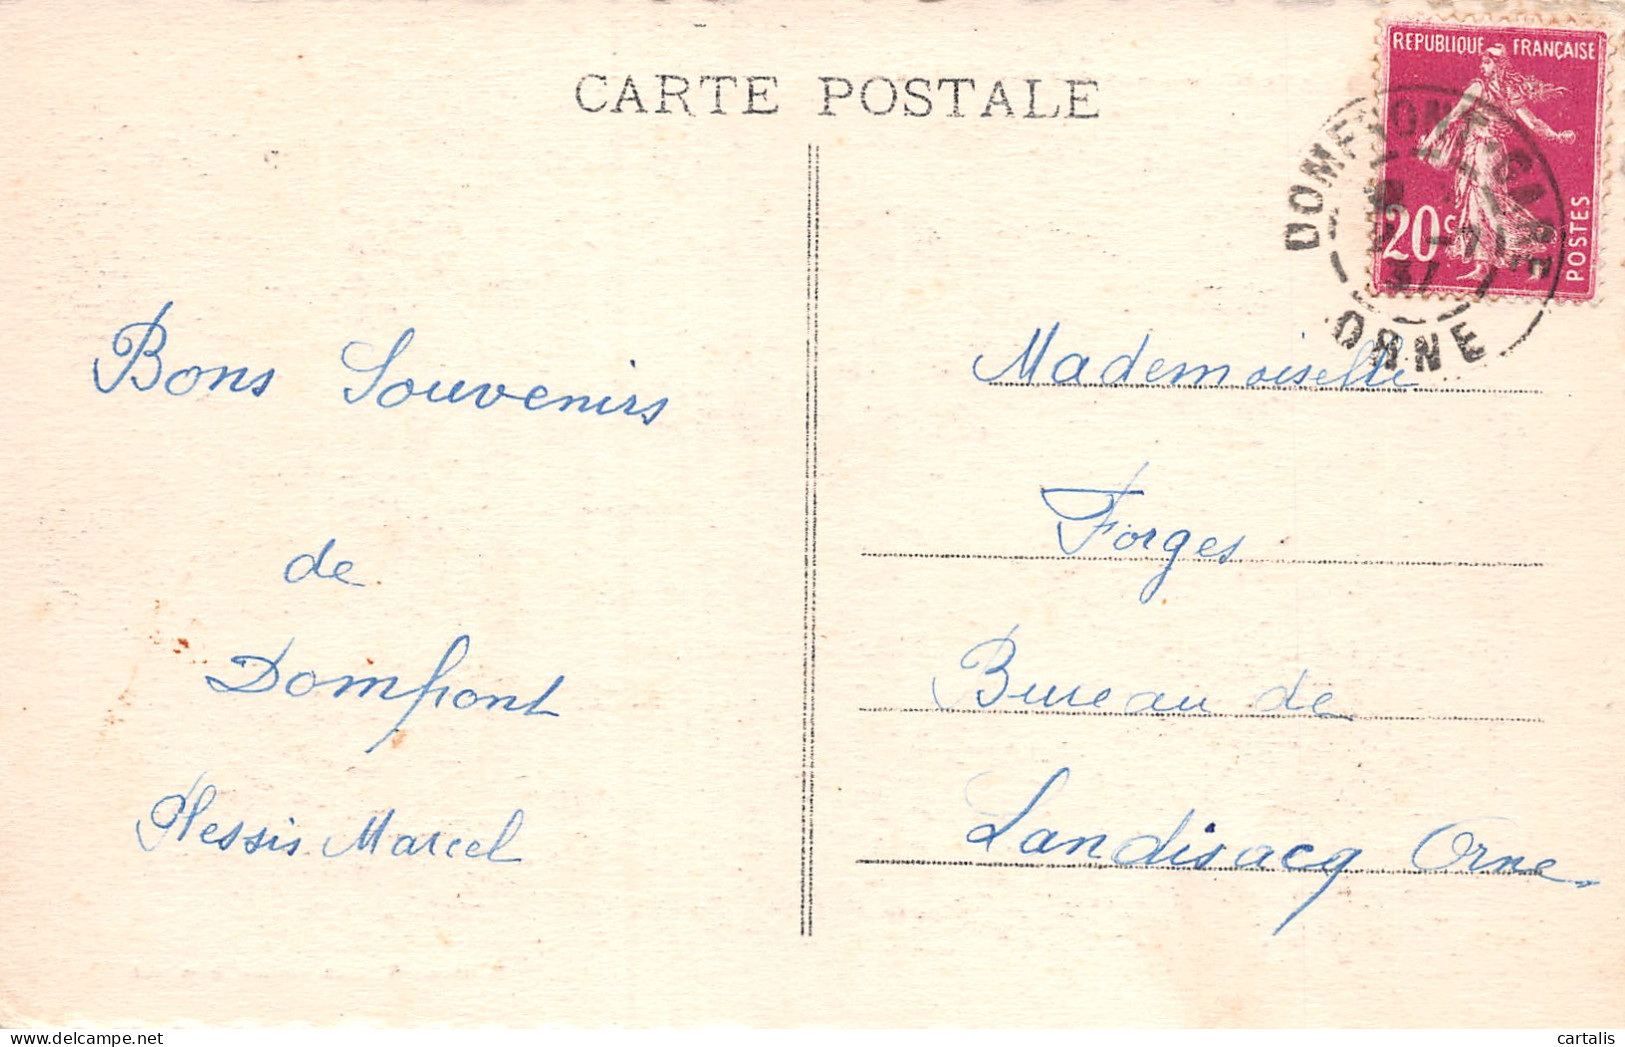 CARTE POSTALE
REPUBLIQUE FRANÇAISE
20c
POSTES
DOMFRONT-GARE
ORNE
Bons Souvenirs
de
Domfront
Plessis Marcel
Mademoiselle
Forges
Bureau de
Landisacq Orne
cartalis